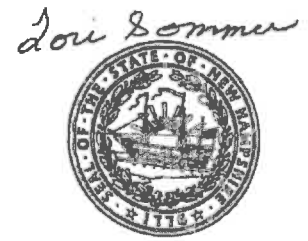 Lori Sommer
SEAL · OF · THE · STATE · OF · NEW HAMPSHIRE · 1776